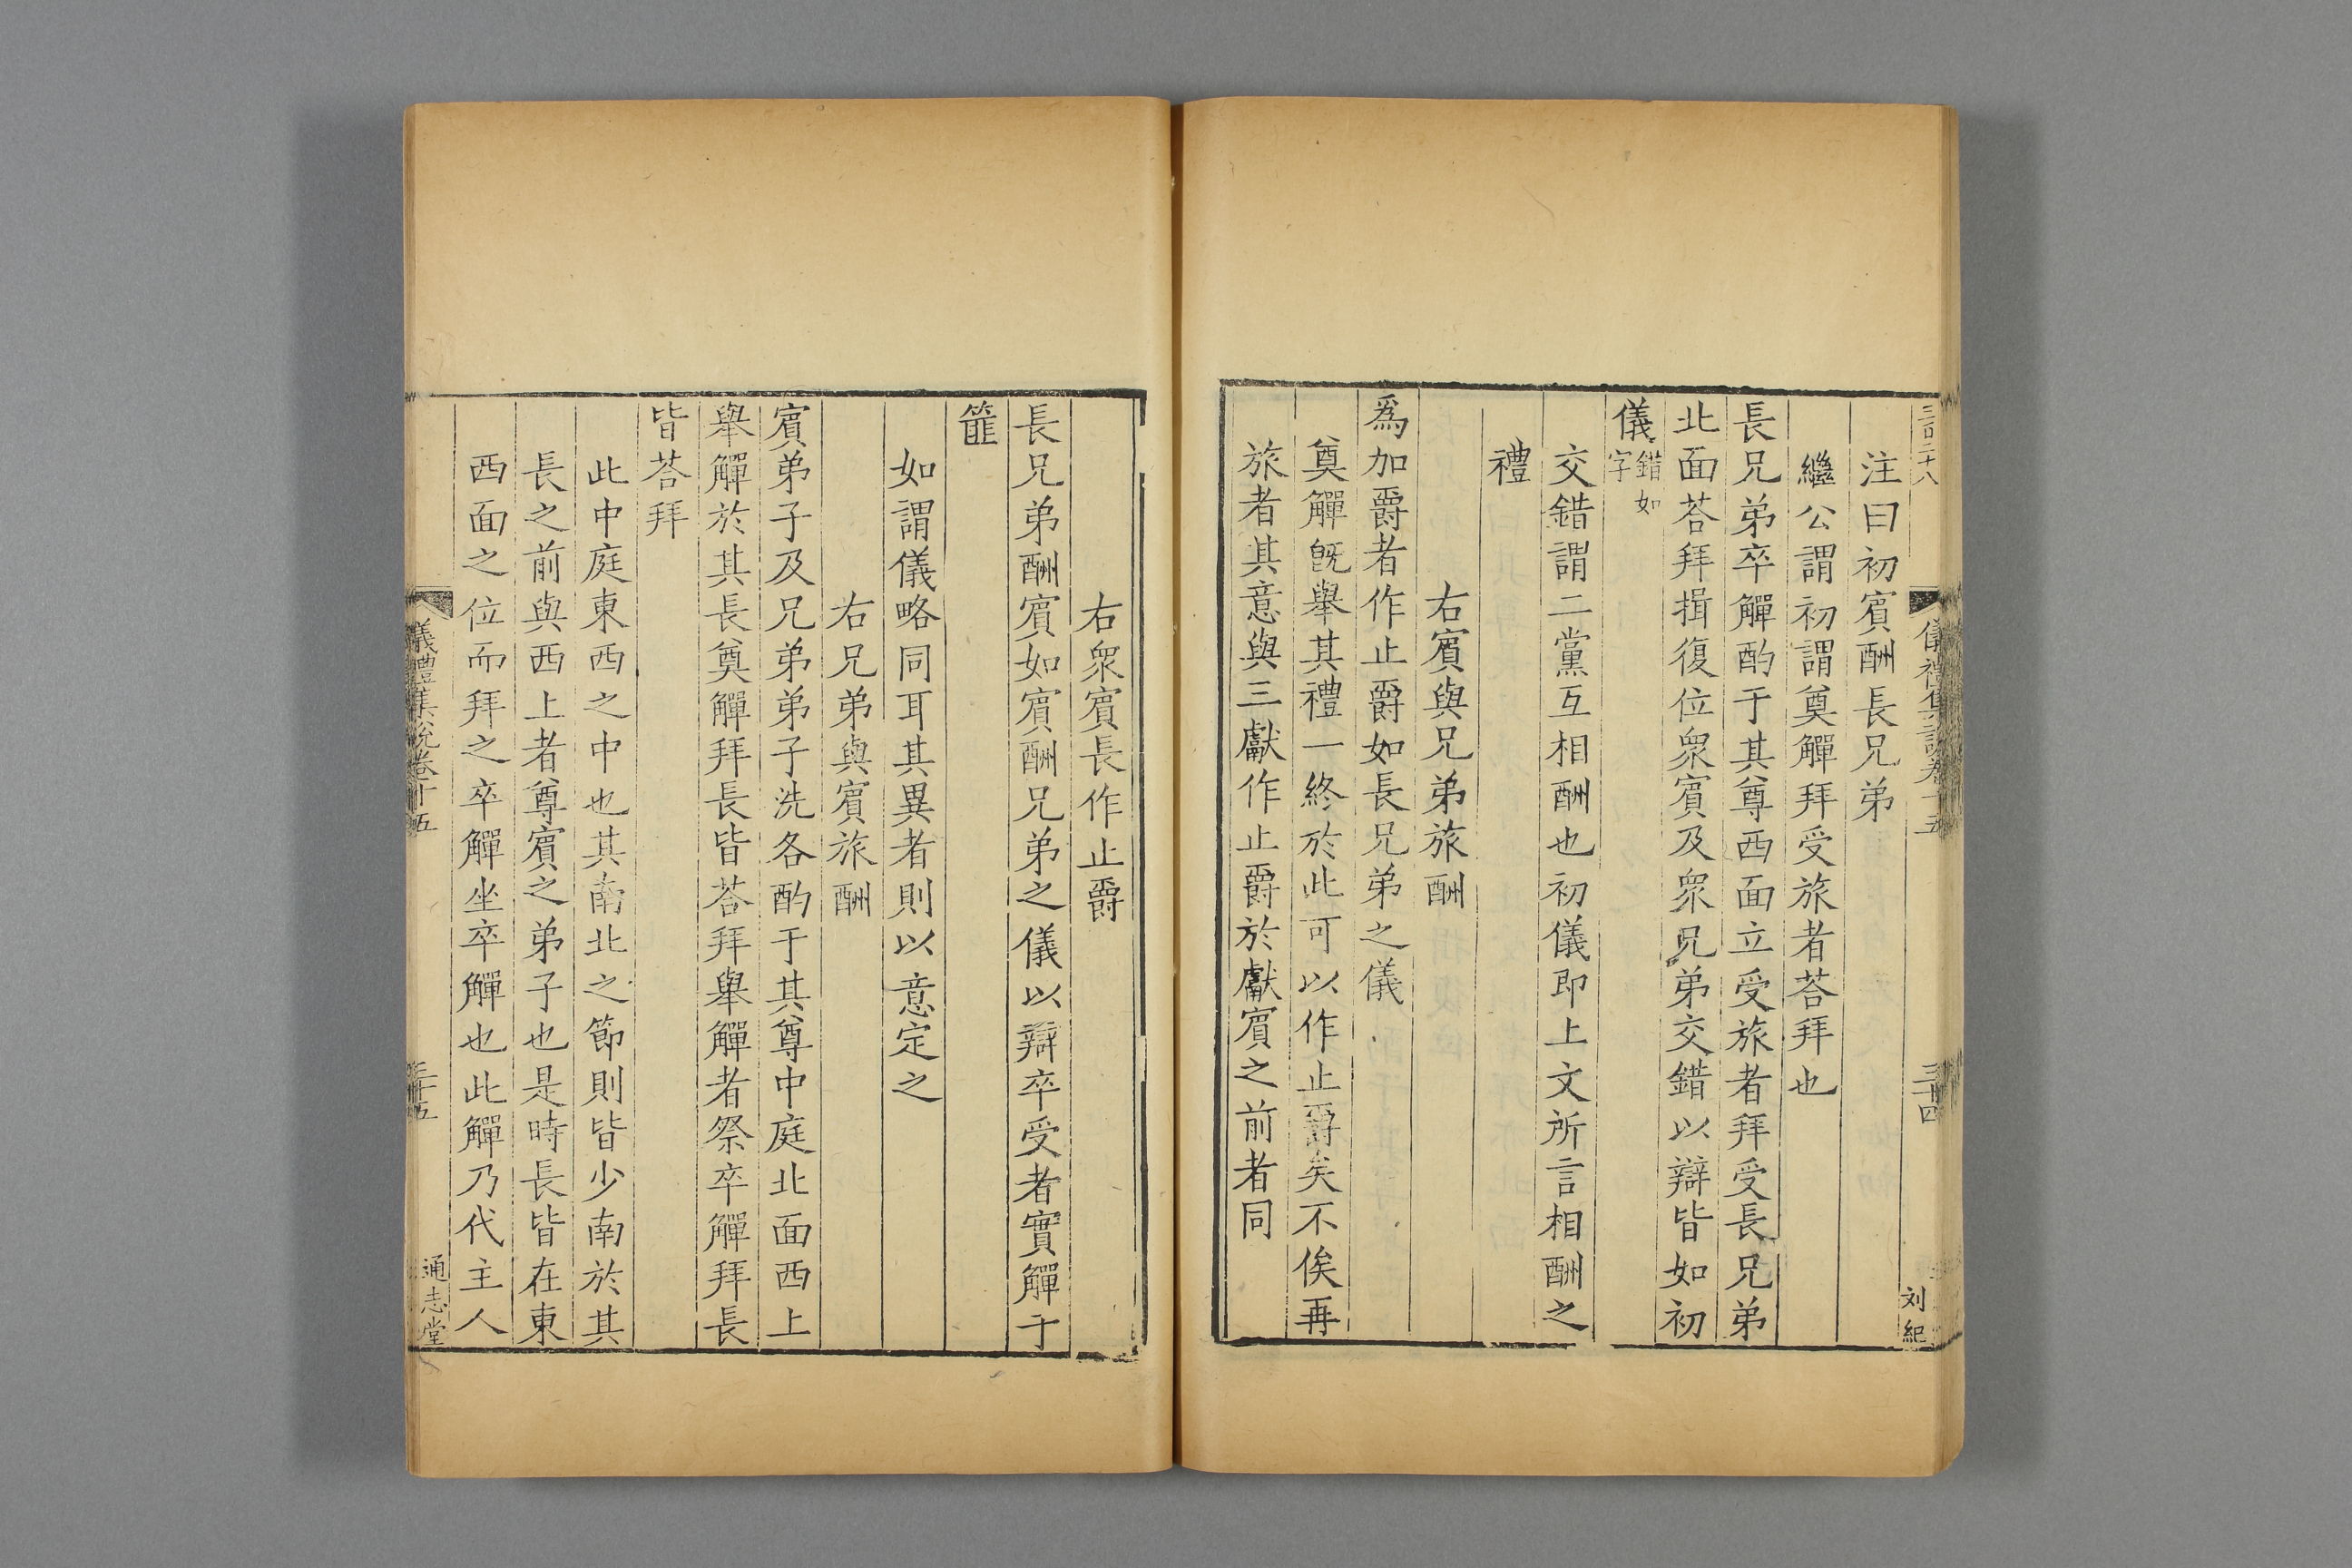 三百二十八
儀禮集說卷十五
三十四
刘紀
注曰初賓酬長兄弟
繼公謂初謂奠觶拜受旅者荅拜也
長兄弟卒觶酌于其尊西面立受旅者拜受長兄弟
北面荅拜揖復位衆賓及衆兄弟交錯以辯皆如初
儀錯如字
交錯謂二黨互相酬也初儀即上文所言相酬之
禮
右賓與兄弟旅酬
爲加爵者作止爵如長兄弟之儀
奠觶旣舉其禮一終於此可以作止爵矣不俟再
旅者其意與三獻作止爵於獻賓之前者同
右衆賓長作止爵
長兄弟酬賓如賓酬兄弟之儀以辯卒受者實觶于
篚
如謂儀略同耳其異者則以意定之
右兄弟與賓旅酬
賓弟子及兄弟弟子洗各酌于其尊中庭北面西上
舉觶於其長奠觶拜長皆荅拜舉觶者祭卒觶拜長
皆荅拜
此中庭東西之中也其南北之節則皆少南於其
長之前與西上者尊賓之弟子也是時長皆在東
西面之位而拜之卒觶坐卒觶也此觶乃代主人
儀禮集說卷十五
三十五
通志堂